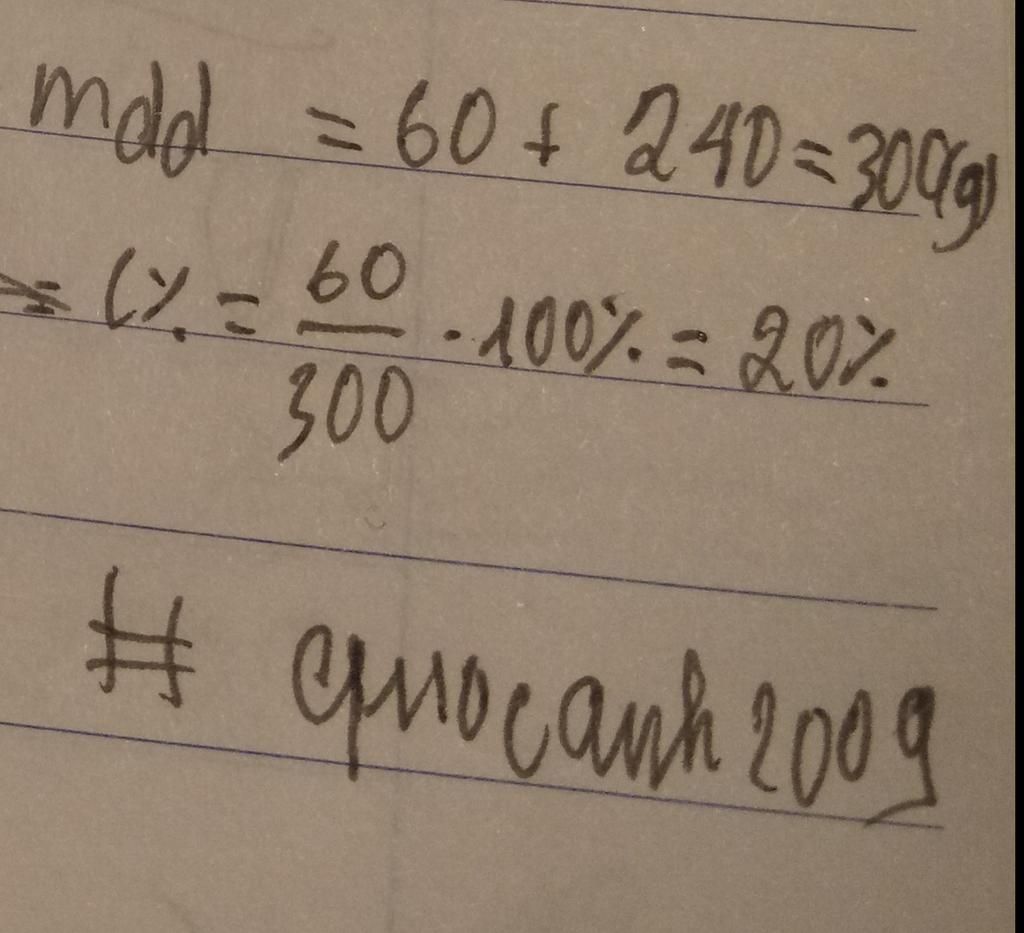 mdd = 60 + 240 = 300(g)
=> C% = 60/300 . 100% = 20%
# quocanh2009